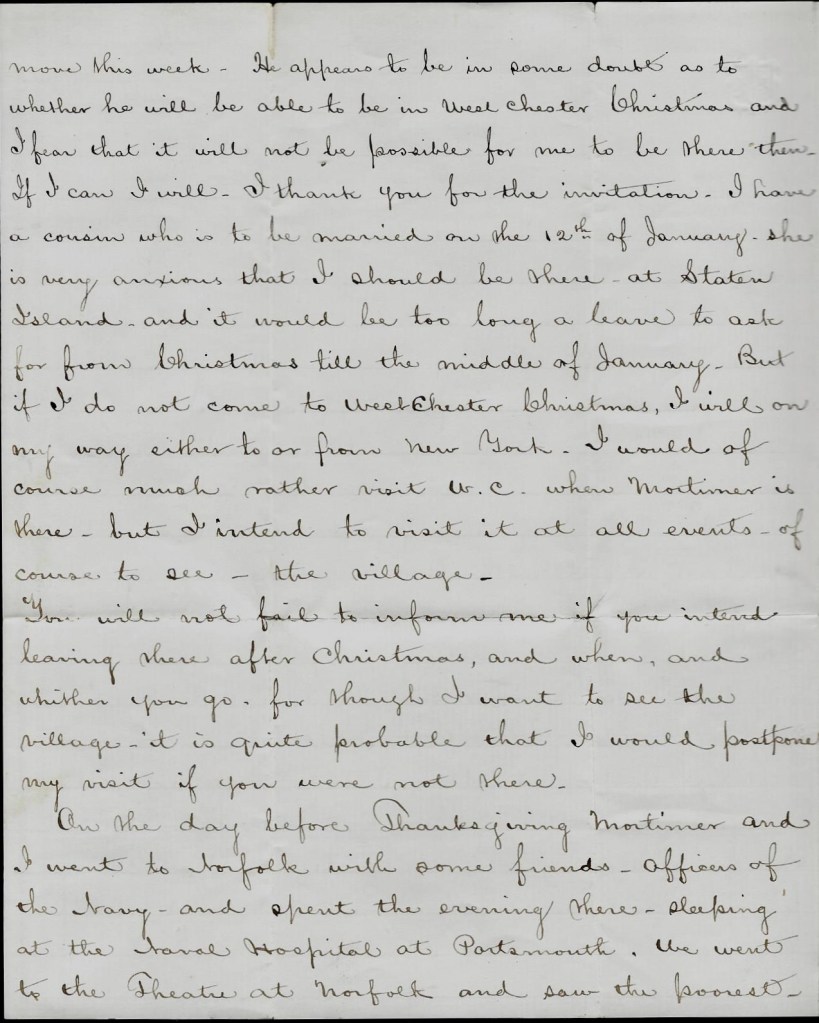 move this week - He appears to be in some doubt as to
whether he will be able to be in West Chester Christmas and
I fear that it will not be possible for me to be there then.
If I can I will - I thank you for the invitation - I have
a cousin who is to be married on the 12th of January - she
is very anxious that I should be there - at Staten
Island - and it would be too long a leave to ask
for from Christmas till the middle of January - But
if I do not come to West Chester Christmas, I will on
my way either to or from New York - I would of
course much rather visit W. C. when Mortimer is
there - but I intend to visit it at all events - of
course to see - the village -
You will not fail to inform me if you intend
leaving there after Christmas, and when, and
whither you go. for though I want to see the
village - it is quite probable that I would postpone
my visit if you were not there -
On the day before Thanksgiving Mortimer and
I went to Norfolk with some friends - officers of
the Navy - and spent the evening there - sleeping
at the Naval Hospital at Portsmouth. We went
to the Theatre at Norfolk and saw the poorest -